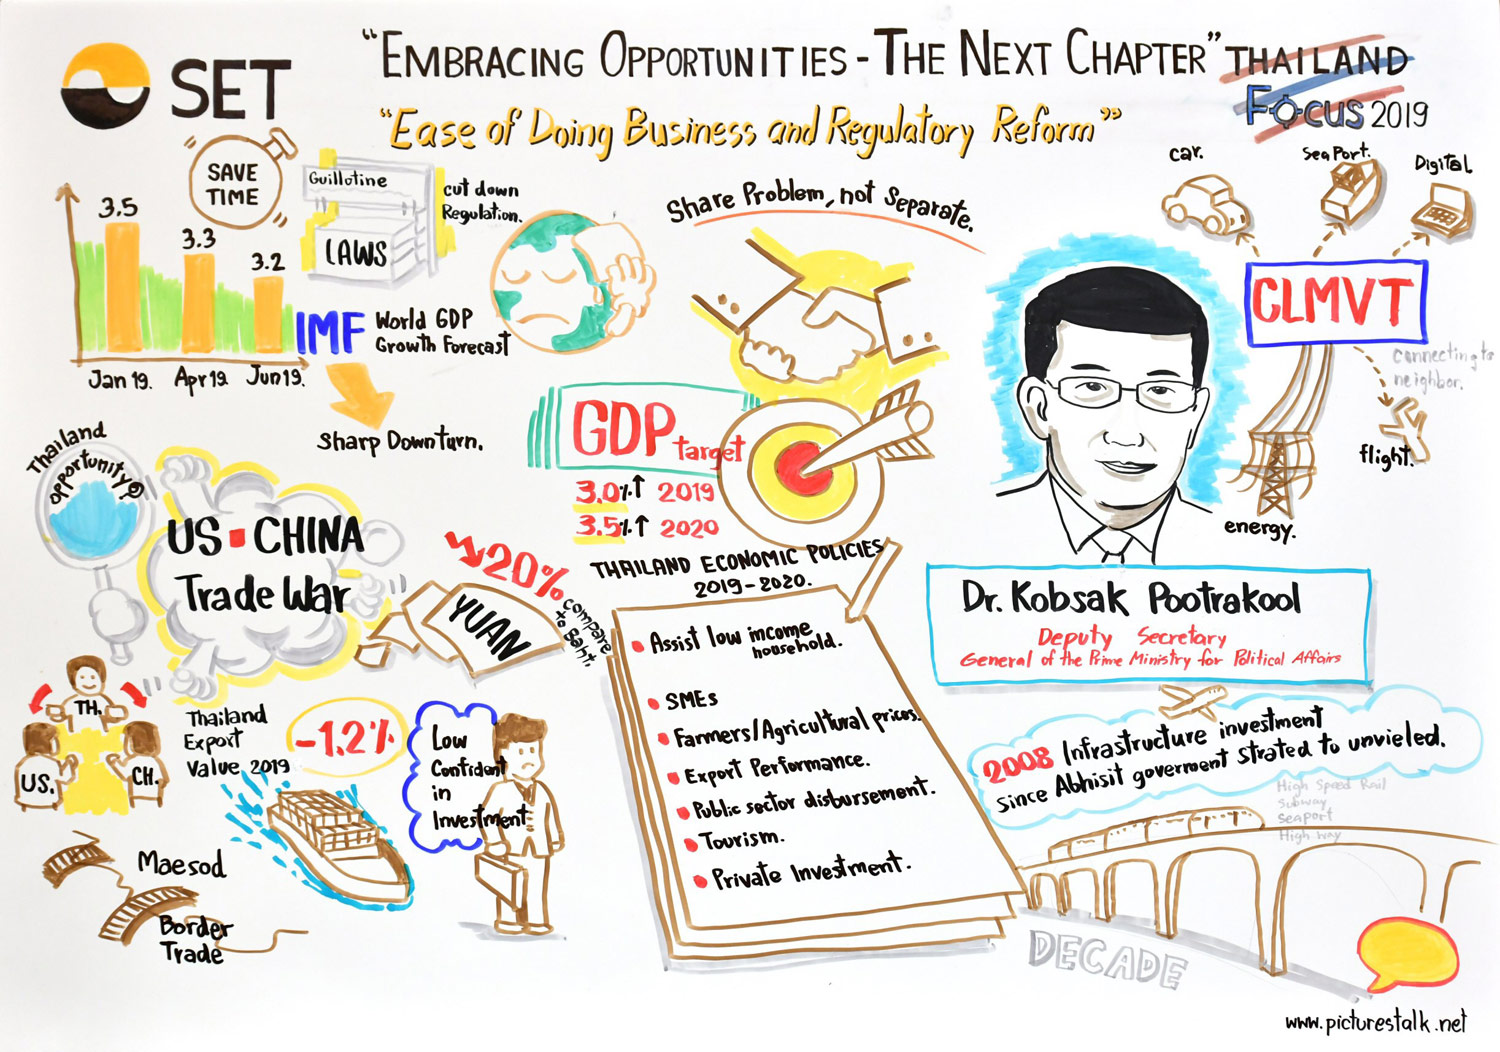 SET
"EMBRACING OPPORTUNITIES - THE NEXT CHAPTER"
THAILAND
Focus 2019
"Ease of Doing Business and Regulatory Reform"
SAVE
TIME
Guillotine
LAWS
cut down
Regulation.
3.5
3.3
3.2
Jan 19.
Apr 19
Jun 19.
IMF
World GDP
Growth Forecast
Sharp Downturn.
Share Problem, not Separate.
car.
Sea Port.
Digital.
CLMVT
connecting to
neighbor.
flight.
energy.
GDP target
3.0% ↑ 2019
3.5% ↑ 2020
Thailand
opportunity?
US CHINA
Trade War
20%
compare
to Baht.
YUAN
TH.
US.
CH.
Thailand
Export
Value 2019
-1.2%
Low
Confident
in
Investment
Maesod
Border
Trade
THAILAND ECONOMIC POLICIES
2019-2020.
Assist low income
household.
SMEs
Farmers/Agricultural prices.
Export Performance.
Public sector disbursement.
Tourism.
Private Investment.
Dr. Kobsak Pootrakool
Deputy Secretary
General of the Prime Ministry for Political Affairs
2008 Infrastructure investment
since Abhisit goverment strated to unvieled.
High Speed Rail
Subway
Seaport
High way
DECADE
www.picturestalk.net